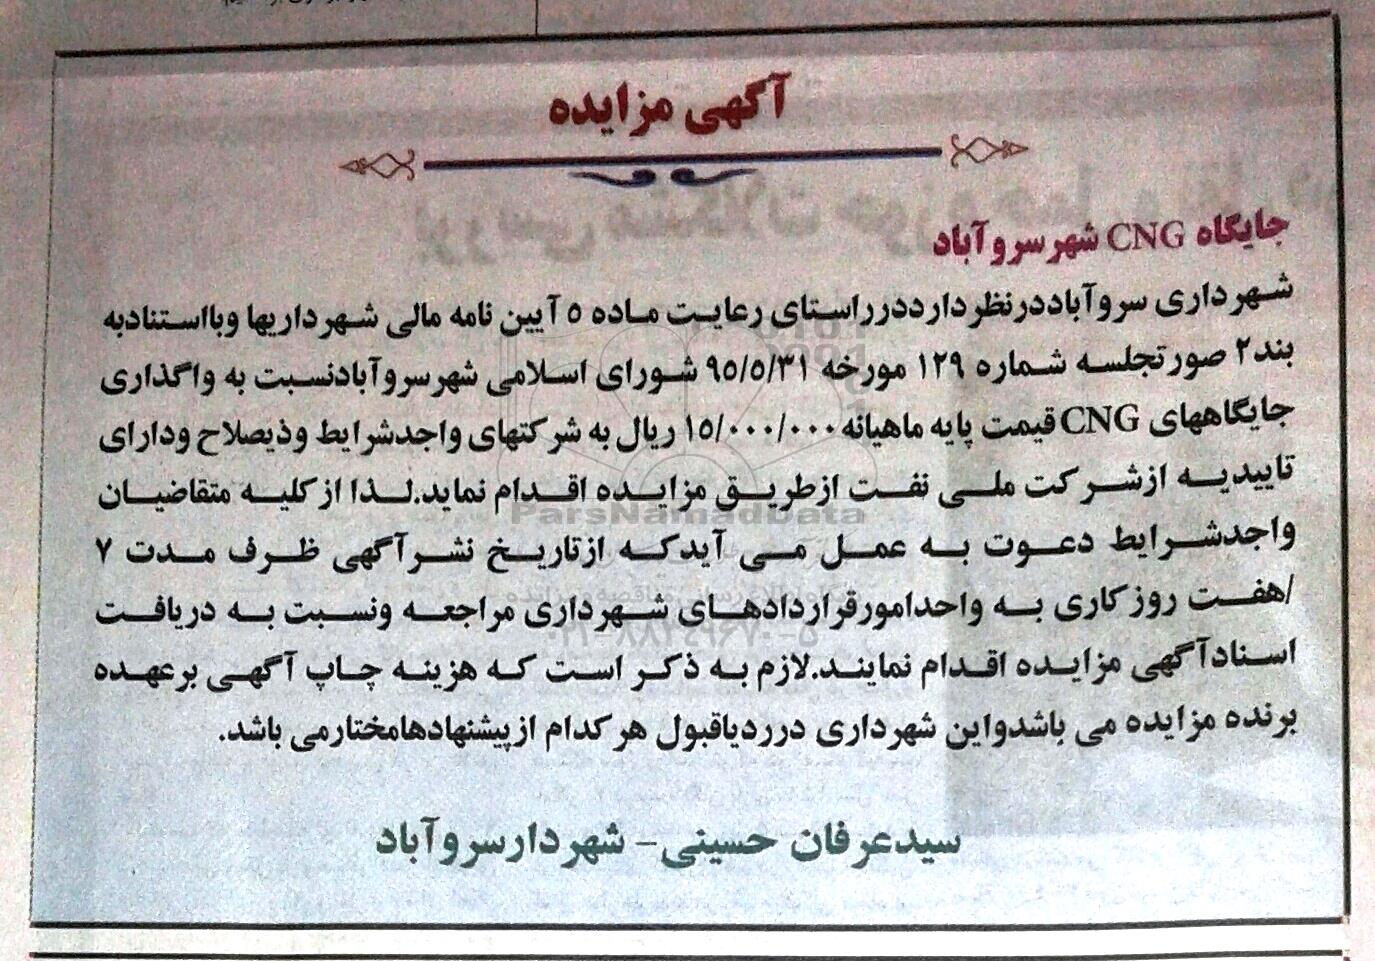 آگهی مزایده
جایگاه CNG شهرسروآباد
شهرداری سروآباددرنظردارددرراستای رعایت ماده ۵ آیین نامه مالی شهرداریها وبااستنادبه
بند۲ صورتجلسه شماره ۱۲۹ مورخه ۹۵/۵/۳۱ شورای اسلامی شهرسروآبادنسبت به واگذاری
جایگاههای CNG قیمت پایه ماهیانه ۱۵/۰۰۰/۰۰۰ ریال به شرکتهای واجدشرایط وذیصلاح ودارای
تاییدیه ازشرکت ملی نفت ازطریق مزایده اقدام نماید.لذا ازکلیه متقاضیان
واجدشرایط دعوت به عمل می آیدکه ازتاریخ نشرآگهی ظرف مدت ۷
/هفت روزکاری به واحدامورقراردادهای شهرداری مراجعه ونسبت به دریافت
اسنادآگهی مزایده اقدام نمایند.لازم به ذکر است که هزینه چاپ آگهی برعهده
برنده مزایده می باشدواین شهرداری درردیاقبول هرکدام ازپیشنهادهامختارمی باشد.
سیدعرفان حسینی- شهردارسروآباد
ParsNamadData
۰۲۱-۸۸۳۴۹۶۷۰-۵